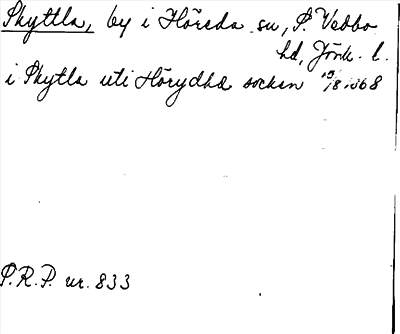 Skyttla, by i Höreda sn, S. Vedbo
hd, Jönk. l.
i Skytla uti Hörydhæ socken 15/8 1368
S.R.P. nr. 833